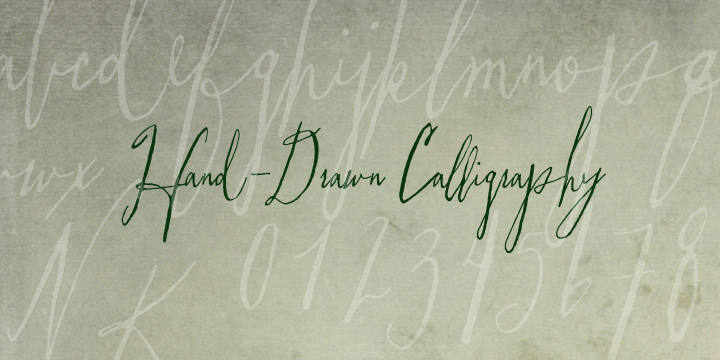 abcdefghijklmnopq
vwx
Hand-Drawn Calligraphy
N K 0 1 2 3 4 5 6 7 8